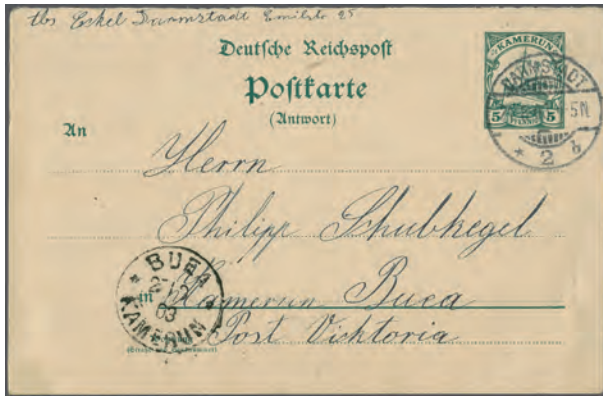 Eckel Darmstadt Emilstr 25
Deutsche Reichspost
Postkarte
(Antwort)
KAMERUN
5 PFENNIG 5
DARMSTADT
5N
* 2 b
An
Herrn
Philipp Schubkegel
in Kamerun Buea
Post Vicktoria
* BUEA *
KAMERUN